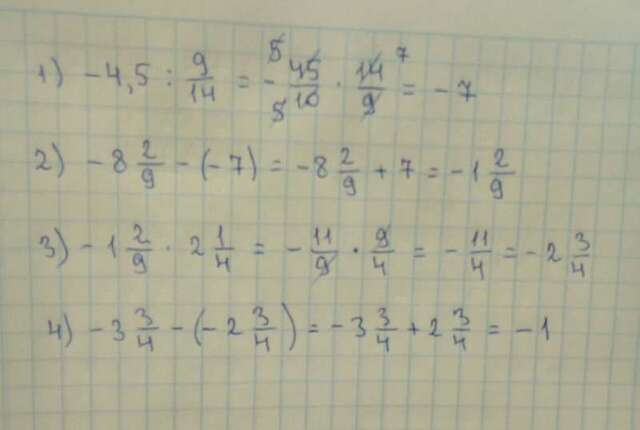 1) -4,5 : 9/14 = - 45/10 · 14/9 = -7 (5 5 7)
2) -8 2/9 - (-7) = -8 2/9 + 7 = -1 2/9
3) -1 2/9 · 2 1/4 = - 11/9 · 9/4 = - 11/4 = -2 3/4
4) -3 3/4 - (-2 3/4) = -3 3/4 + 2 3/4 = -1